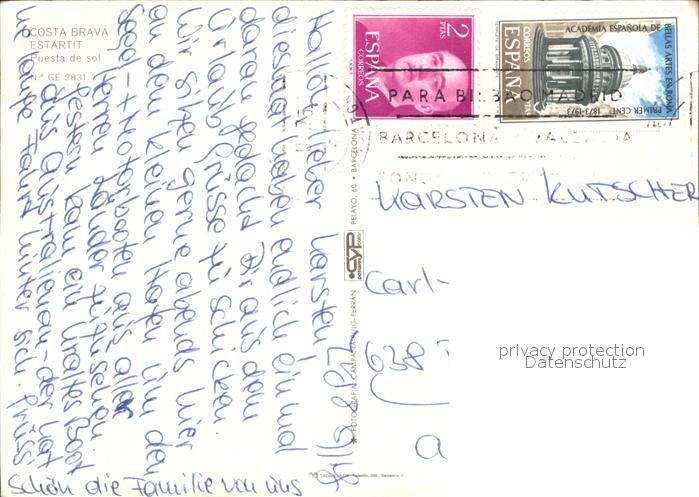 COSTA BRAVA
ESTARTIT
Puesta de sol
N.° GE 2831
Hallo lieber Karsten
diesmal haben endlich einmal
daran gedacht Dir aus dem
Urlaub Grüsse zu schicken
Wir sitzen gerne abends hier
an den kleinen Hafen um den
Segel + Motorbooten aus aller
Herren Länder zuzuschauen.
Gestern kam ein uraltes Boot
aus Australien an - der hat
ne lange Fahrt hinter sich. Grüss
schön die Familie von uns
2
PTAS
ESPAÑA
CORREOS
ACADEMIA ESPAÑOLA DE
BELLAS ARTES EN ROMA
PRIMER CENT.
1873-1973
CORREOS
ESPAÑA
PARA BILBAO MADRID
BARCELONA VALENCIA
PELAYO, 60 • BARCELONA
FOTOGRAFIA CAMPAÑA PUIG-FERRAN
KARSTEN KUTSCHER
Carl-
638
privacy protection
Datenschutz